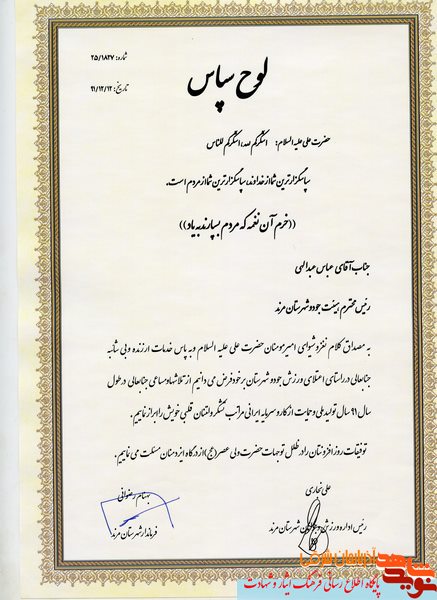 شماره: ۲۵/۱۸۲۷
تاریخ: ۹۱/۱۲/۱۲
لوح سپاس
حضرت علی علیه السلام: اشکرکم لله، اشکرکم للناس
سپاسگزارترین شما از خداوند، سپاسگزارترین شما از مردم است.
((خرم آن نغمه که مردم بسپارند به یاد))
جناب آقای عباس عبدالهی
رئیس محترم هیئت جودو شهرستان مرند
به مصداق کلام نغز و شیوای امیرمومنان حضرت علی علیه السلام و به پاس خدمات ارزنده و بی شائبه
جنابعالی در راستای اعتلای ورزش جودو شهرستان بر خود فرض می دانیم از تلاشها و مساعی جنابعالی در طول
سال ۹۱ سال تولید ملی و حمایت از کار و سرمایه ایرانی مراتب تشکر و امتنان قلبی خویش را ابراز نماییم.
توفیقات روزافزونتان را در ظلل توجهات حضرت ولی عصر(عج) از درگاه ایزد منان مسئلت می نماییم.
علی نجاری
رئیس اداره ورزش و جوانان شهرستان مرند
بهنام رضوانی
فرماندار شهرستان مرند
نوید شاهد
آذربایجان شرقی
پایگاه اطلاع رسانی فرهنگ ایثار و شهادت